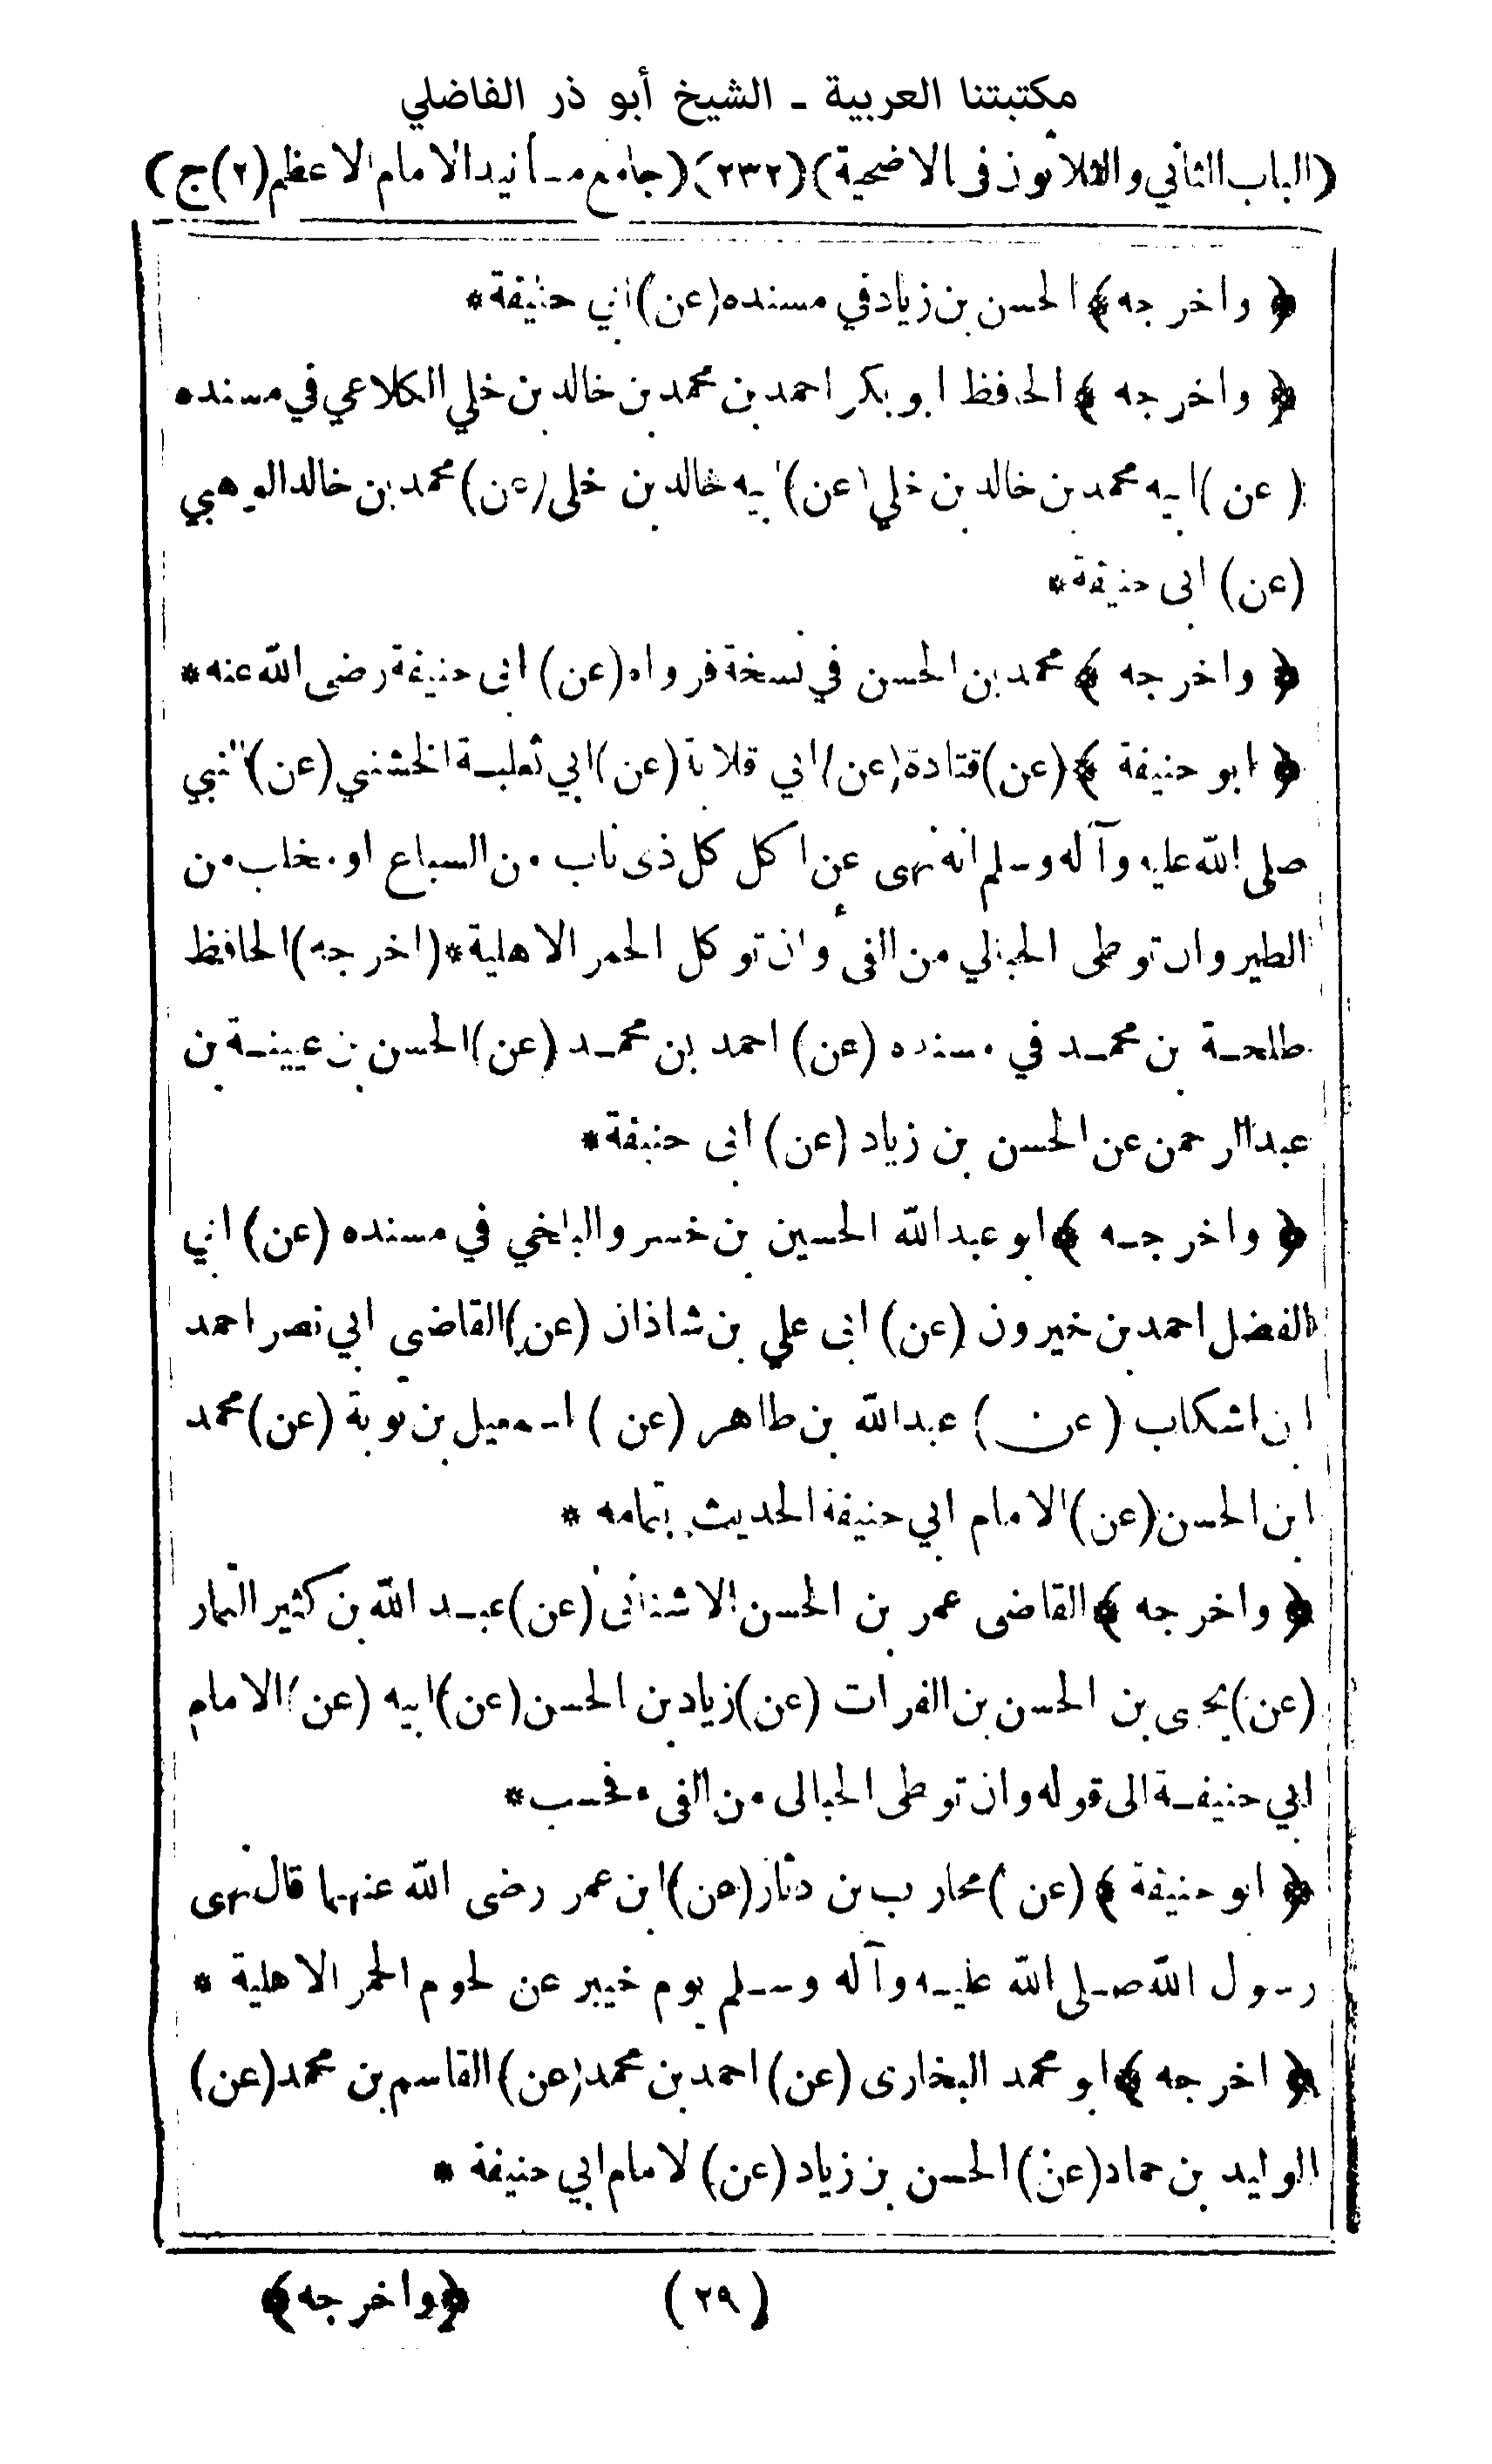 مكتبتنا العربية ـ الشيخ أبو ذر الفاضلي
(الباب الثاني والثلاثون فى الاضحية) (٢٣٢) (جامع مسانيد الامام الاعظم (٢) ج)
﴿ واخرجه ﴾ الحسن بن زياد في مسنده (عن) ابي حنيفة *
﴿ واخرجه ﴾ الحافظ ابوبكر احمد بن محمد بن خالد بن خلي الكلاعي في مسنده
(عن) ابيه محمد بن خالد بن خلي (عن) ابيه خالد بن خلى (عن) محمد بن خالد الوهبي
(عن) ابى حنيفة *
﴿ واخرجه ﴾ محمد بن الحسن في نسخة فرواه (عن) ابى حنيفة رضى الله عنه *
﴿ ابو حنيفة ﴾ (عن) قتادة (عن) ابي قلابة (عن) ابي ثعلبة الخشني (عن) النبي
صلى الله عليه وآله وسلم انه نهى عن اكل كل ذى ناب من السباع او مخلب من
الطير وان توطى الحبالي من الفئ وان توكل الحمر الاهلية * (اخرجه) الحافظ
طلحة بن محمد في مسنده (عن) احمد بن محمد (عن) الحسن بن عيينة بن
عبدالرحمن عن الحسن بن زياد (عن) ابى حنيفة *
﴿ واخرجه ﴾ ابو عبدالله الحسين بن خسرو البلخي في مسنده (عن) ابي
الفضل احمد بن خيرون (عن) ابى علي بن شاذان (عن) القاضى ابي نصر احمد
ابن اشكاب (عن) عبدالله بن طاهر (عن) اسمعيل بن توبة (عن) محمد
ابن الحسن (عن) الامام ابي حنيفة الحديث بتمامه *
﴿ واخرجه ﴾ القاضى عمر بن الحسن الاشنانى (عن) عبد الله بن كثير التمار
(عن) يحيى بن الحسن بن الفرات (عن) زياد بن الحسن (عن) ابيه (عن) الامام
ابي حنيفة الى قوله وان توطى الحبالى من الفىء فحسب *
﴿ ابو حنيفة ﴾ (عن) محارب بن دثار (عن) ابن عمر رضى الله عنهما قال نهى
رسول الله صلى الله عليه وآله وسلم يوم خيبر عن لحوم الحمر الاهلية *
﴿ اخرجه ﴾ ابو محمد البخارى (عن) احمد بن محمد (عن) القاسم بن محمد (عن)
الوليد بن حماد (عن) الحسن بن زياد (عن) لامام ابي حنيفة *
(٢٩) ﴿واخرجه﴾